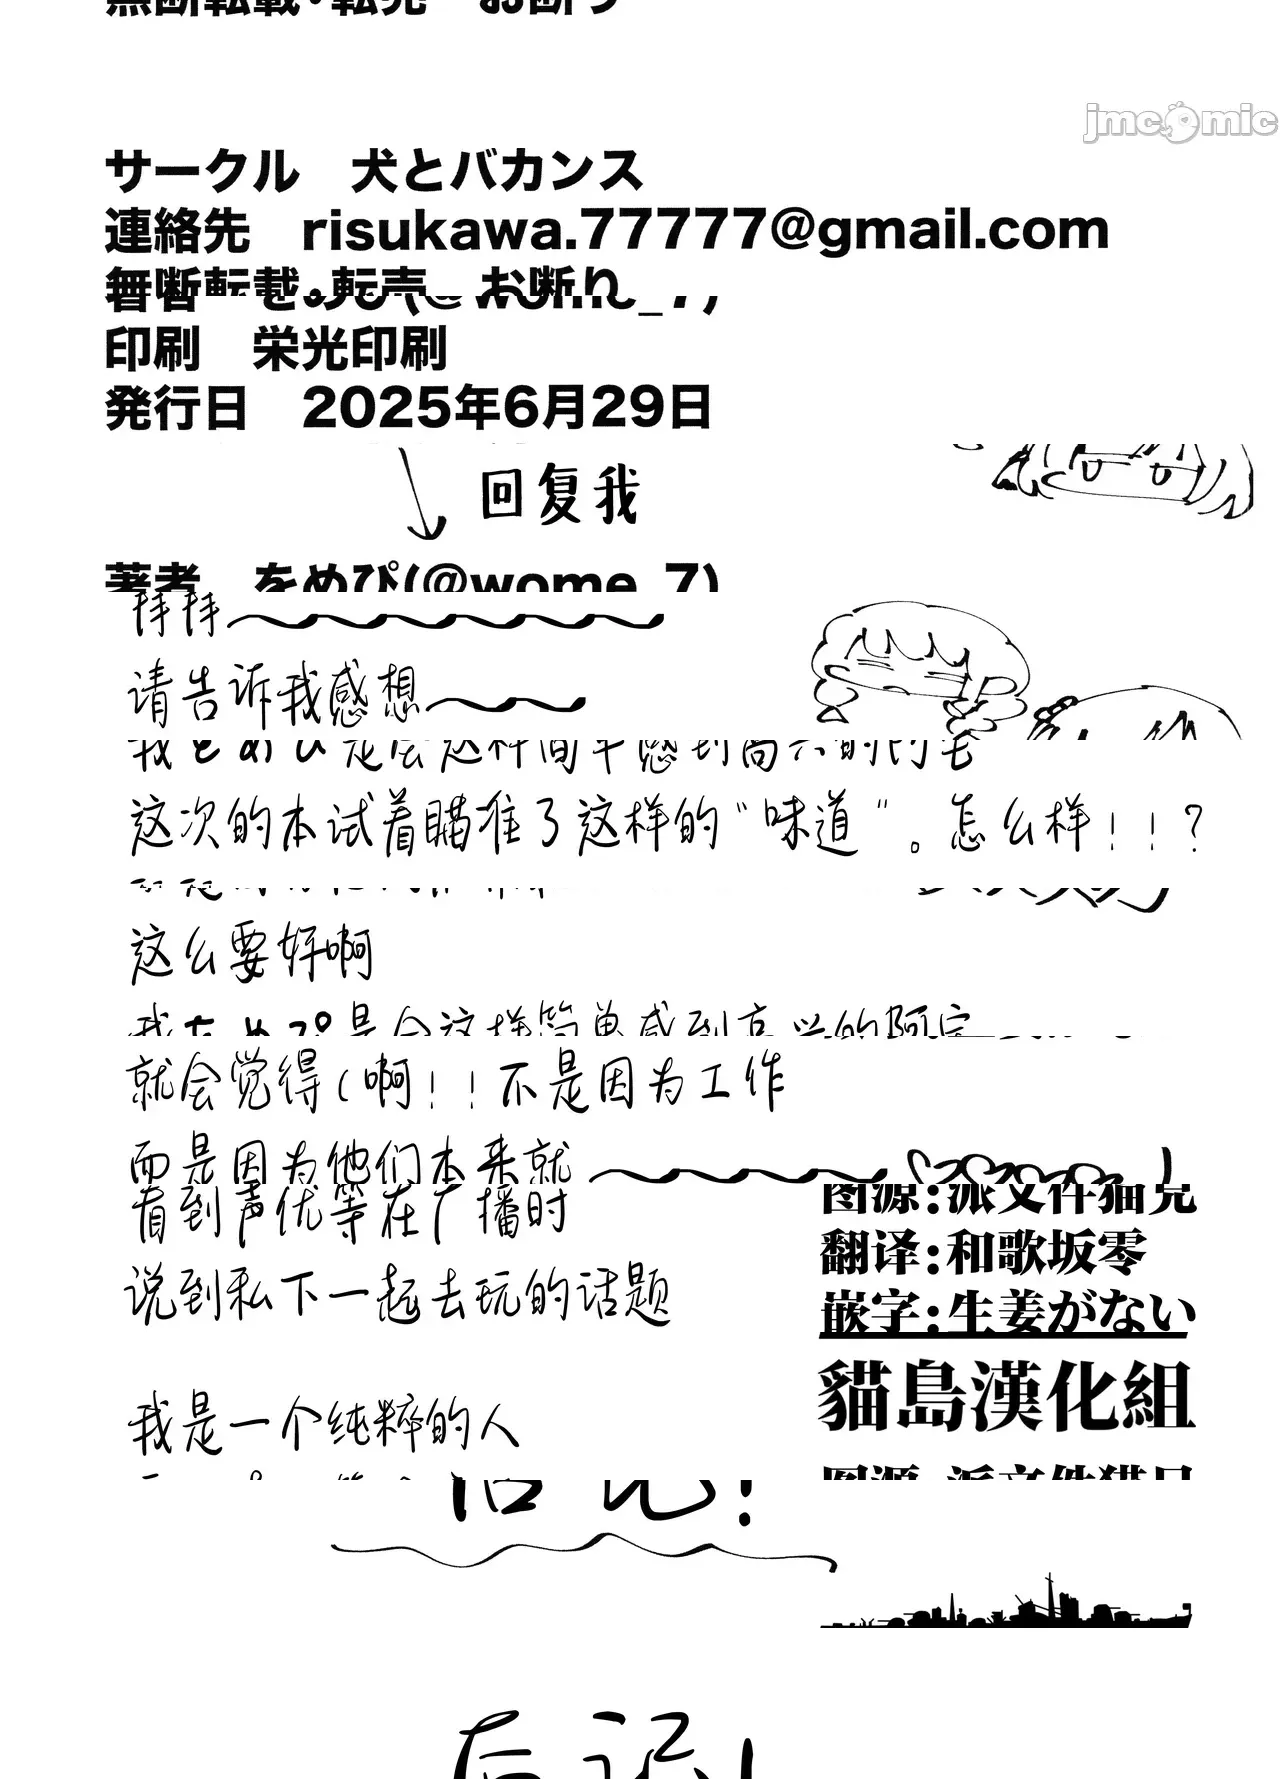 無断転載・転売　お断り
jmcomic
サークル　犬とバカンス
連絡先　risukawa.77777@gmail.com
無断転載・転売　お断り
印刷　栄光印刷
発行日　2025年6月29日
回复我
著者　をめぴ(@wome_7)
拜拜
请告诉我感想
这次的本试着瞄准了这样的“味道”。怎么样！！？
这么要好啊
我をめぴ是会这样简单感到高兴的阿宅
就会觉得（啊！！不是因为工作
而是因为他们本来就
看到声优等在广播时
说到私下一起去玩的话题
我是一个纯粹的人
图源:派文件猫兄
翻译:和歌坂零
嵌字:生姜がない
貓島漢化組
后记!